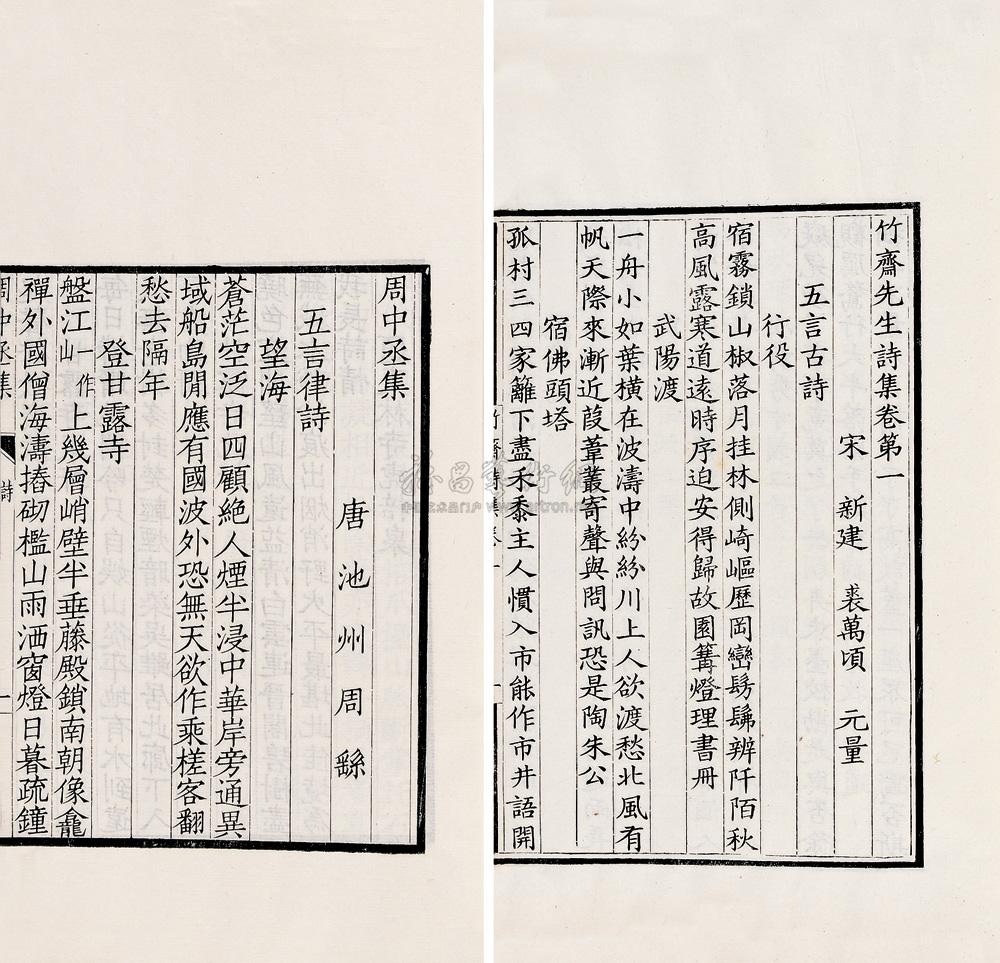 竹齋先生詩集卷第一
宋 新建 裘萬頃 元量
五言古詩
行役
宿霧鎖山椒落月挂林側崎嶇歷岡巒髣髴辨阡陌秋
高風露寒道遠時序迫安得歸故園篝燈理書冊
武陽渡
一舟小如葉橫在波濤中紛紛川上人欲渡愁北風有
帆天際來漸近葭葦叢寄聲與問訊恐是陶朱公
宿佛頭塔
孤村三四家籬下盡禾黍主人慣入市能作市井語開
周中丞集
唐池州周繇
五言律詩
望海
蒼茫空泛日四顧絕人煙半浸中華岸旁通異
域船島間應有國波外恐無天欲作乘槎客翻
愁去隔年
登甘露寺
盤江一作山上幾層峭壁半垂藤殿鎖南朝像龕
禪外國僧海濤摏砌檻山雨洒窗燈日暮疏鐘
周中丞集 詩 一